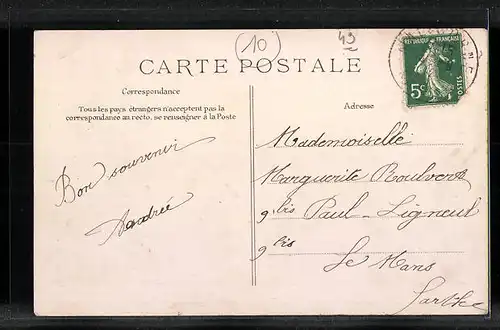 (10)
49
CARTE POSTALE
RÉPUBLIQUE FRANÇAISE
5c
POSTES
Correspondance
Tous les pays étrangers n'acceptent pas la
correspondance au recto, se renseigner à la Poste
Adresse
Bon souvenir
Andrée
Mademoiselle
Marguerite
9 bis Paul-Ligneul
9 bis
Le Mans
Sarthe